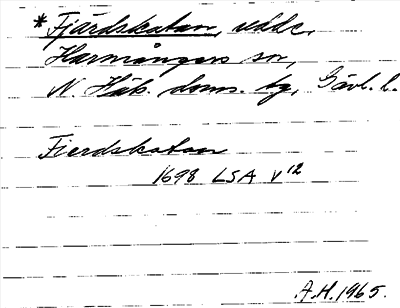 *Fjärdskatan, udde,
Harmångers sn,
N. Häls. doms. bg, Gävl. l.
Fierdskatan
1698 LSA V12
A.H. 1965.